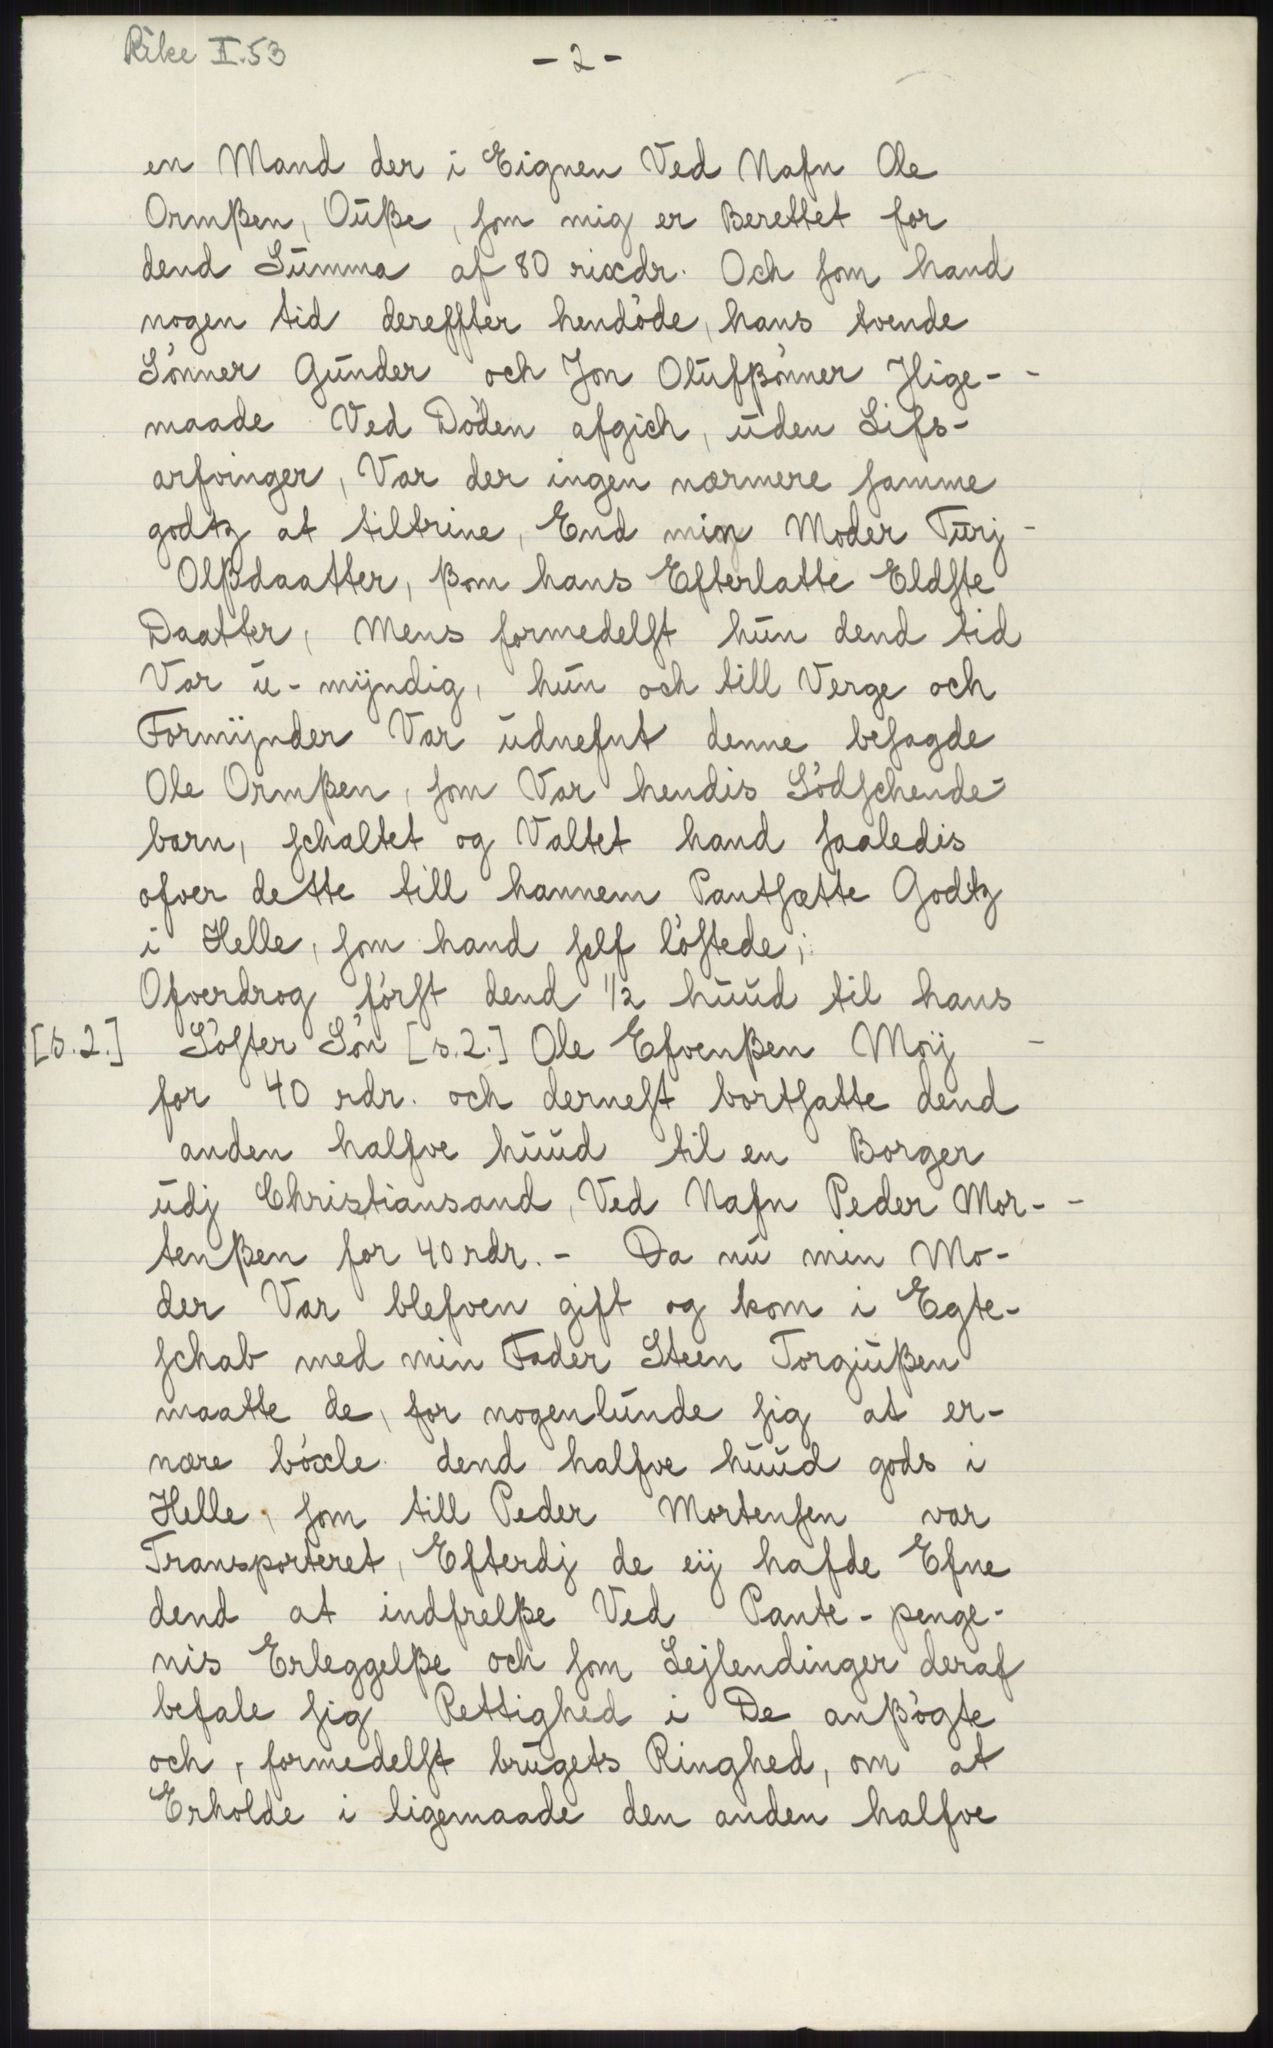 Rike II.53
- 2 -
en Mand der i Eignen Ved Nafn Ole
Ormßen, Oüße, som mig er Berettet for
dend Sümma af 80 rixdr. Och som hand
nogen tid dereffter hendöde, hans tvende
Sönner Günder och Jon Olüfßönner Jlige-
maade Ved Döden afgich, üden Lifs-
arfvinger, Var der ingen nærmere samme
godtz at tiltrine, End min Moder Türj
Olßdaatter, ßom hans Efterlatte Eldste
Daatter, Mens formedelst hün dend tid
Var ü-mÿndig, hün och till Verge och
Formÿnder Var üdnefnt denne besagde
Ole Ormßen, som Var hendis Södschende-
barn, schaltet og Valtet hand saaledis
ofver dette till hannem Pantsætte Godtz
i Helle, som hand self löstede;
Ofverdrog först dend 1/2 hüüd til hans
[s.2.] Söster Sön [s.2.] Ole Efvenßen Möÿ
for 40 rdr. och dernest bortsatte dend
anden halfve hüüd til en Borger
üdj Christiansand, Ved Nafn Peder Mor-
tenßen for 40 rdr. - Da nü min Mo-
der Var blefven gift og kom i Egte-
schab med min Fader Steen Torgiüßen
maatte de, for nogenlünde sig at er-
nære böxle dend halfve hüüd gods i
Helle, som till Peder Mortensen var
Transporteret, Efterdj de eÿ hafde Efne
dend at indfrelße Ved Pante-penge-
nis Erleggelße och som Lejlendinger deraf
befale sig Rettighed i De anßögte
och, formedelst brügets Ringhed, om at
Erholde i ligemaade den anden halfve